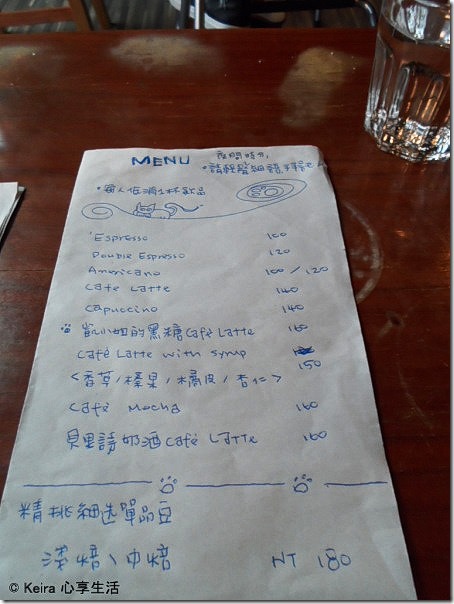 MENU
夜間時分,
請輕聲細語
•每人低消1杯飲品
Espresso 100
Double Espresso 120
Americano 100/120
Cafe Latte 140
Capuccino 140
凱小姐的黑糖Café Latte 160
Café Latte with syrup 150
<香草/榛果/橘皮/杏仁>
Café Mocha 160
貝里詩奶酒Café Latte 160
精挑細选單品豆
淺焙、中焙 NT 180
© Keira 心享生活